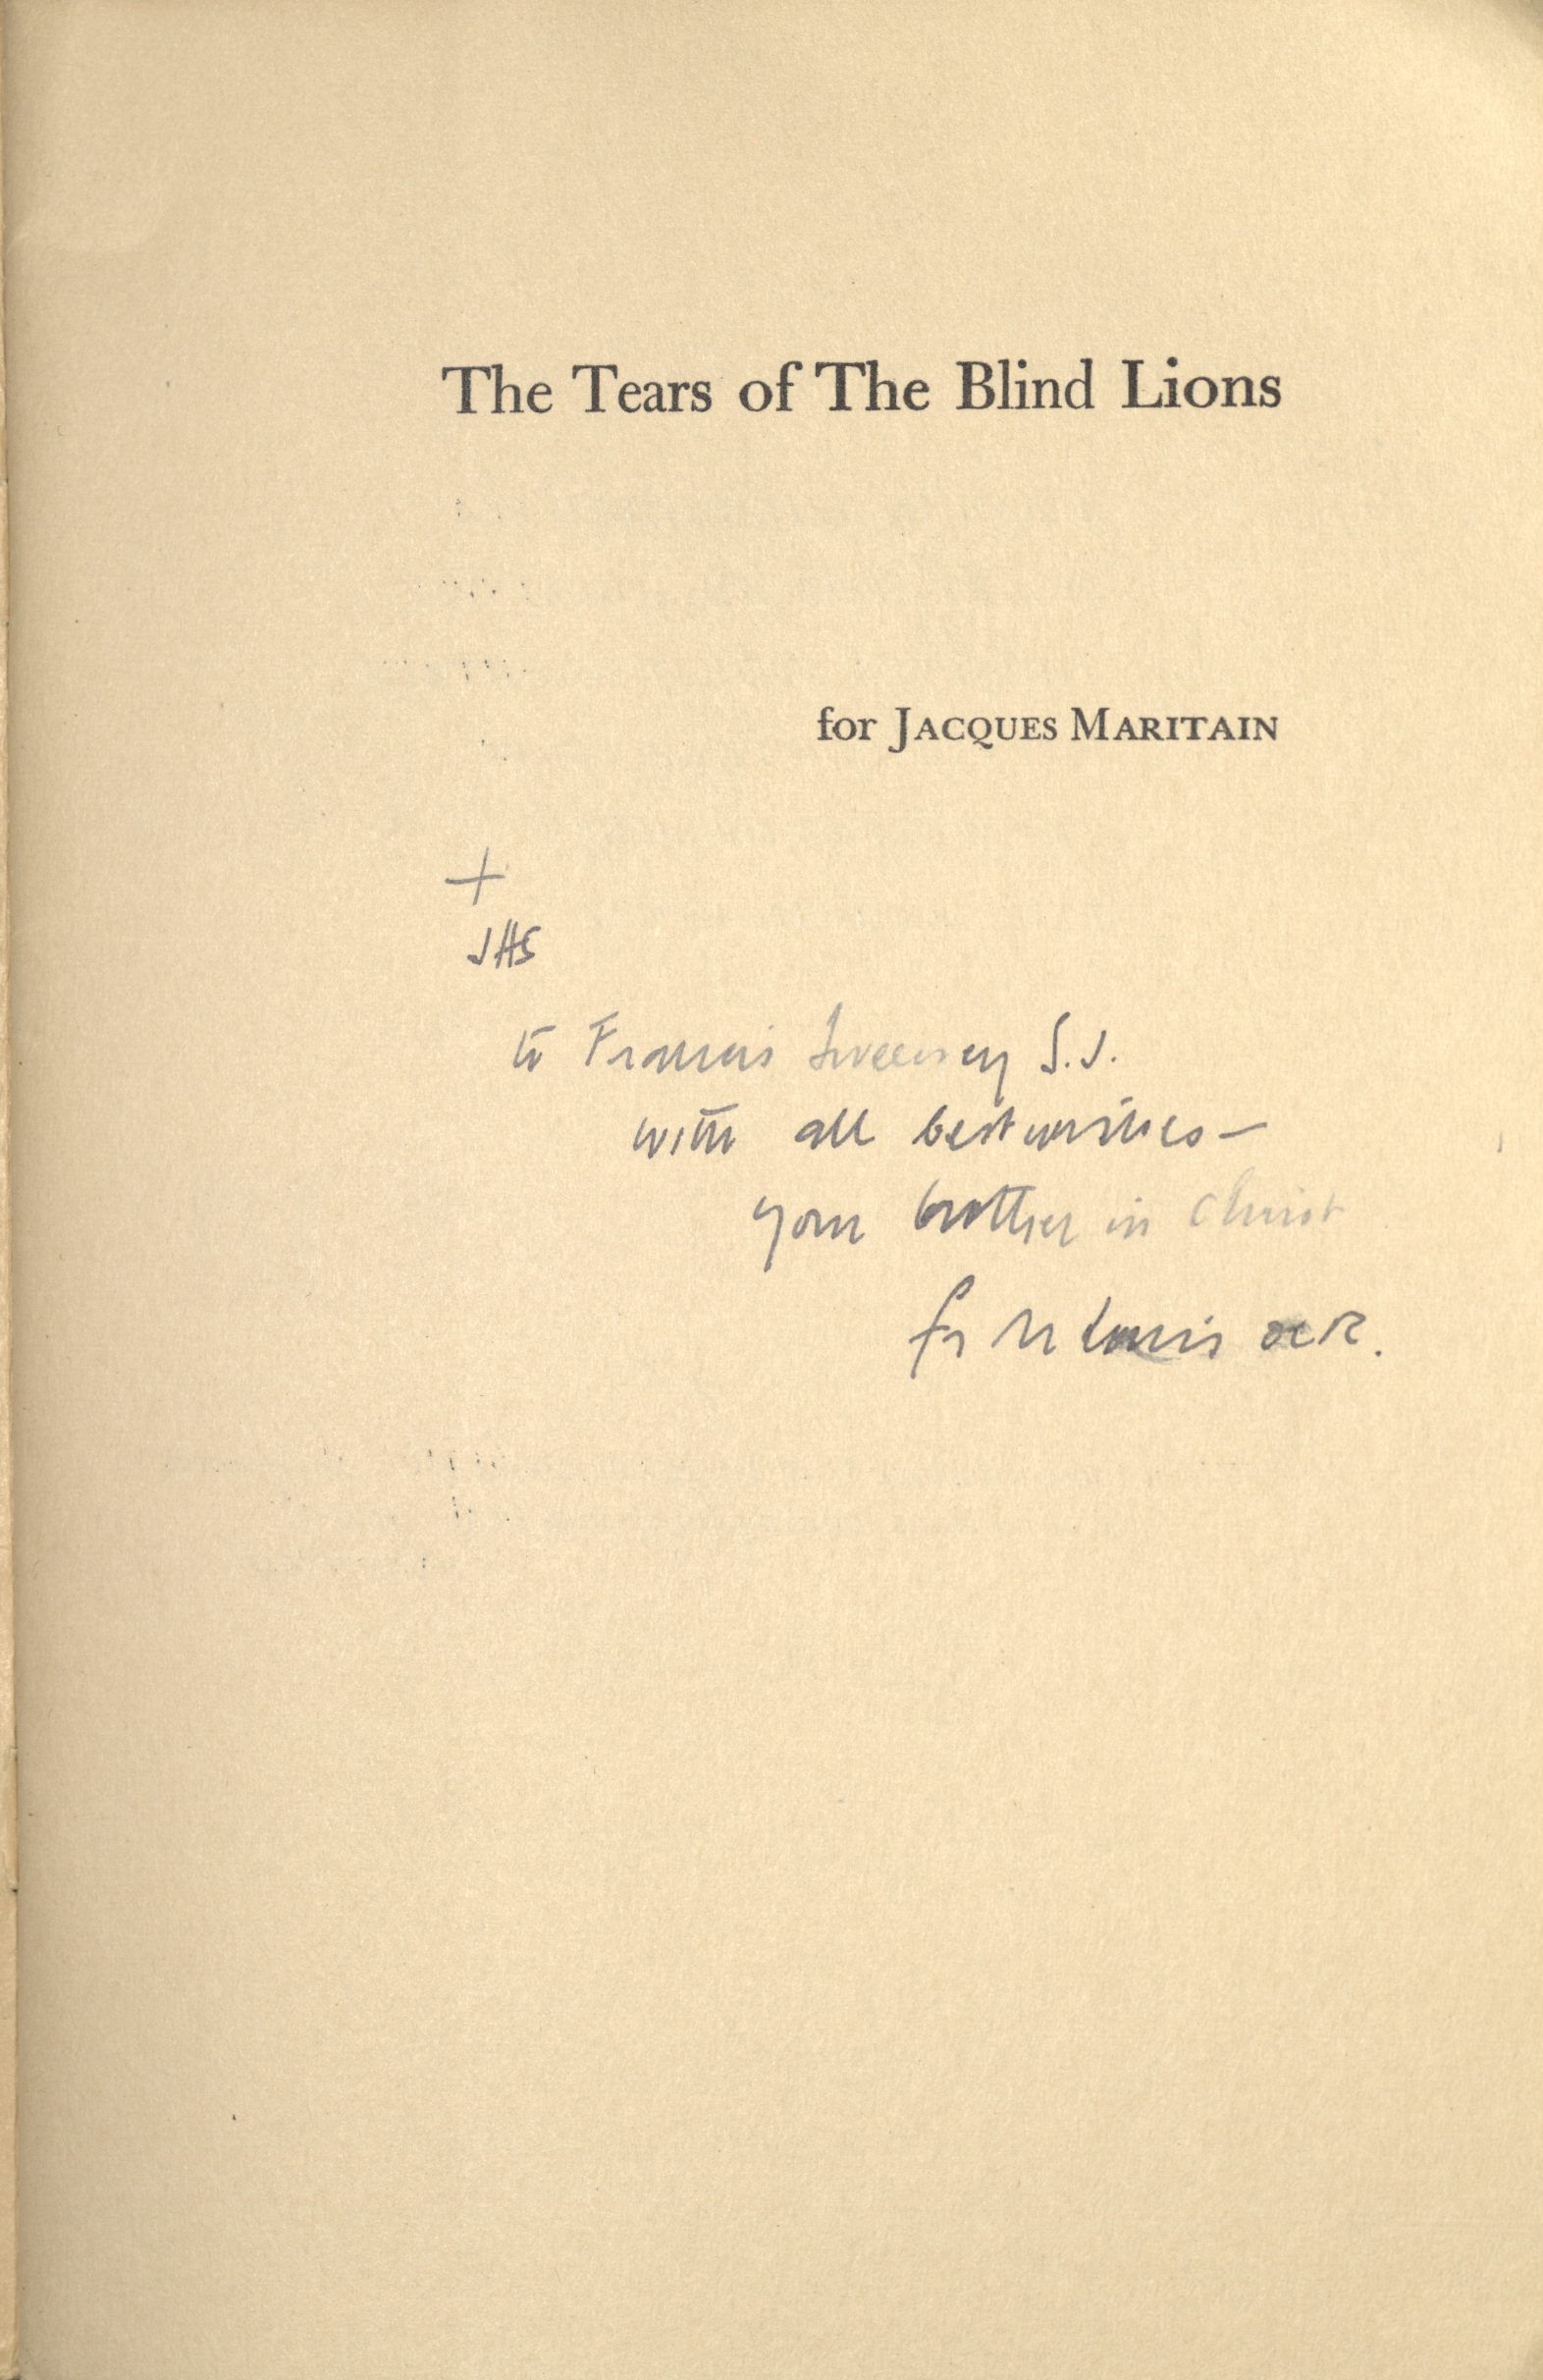 The Tears of The Blind Lions
for JACQUES MARITAIN
+
JHS
to Francis Sweeney S.J.
with all best wishes—
your brother in Christ
fr M Louis ocR.